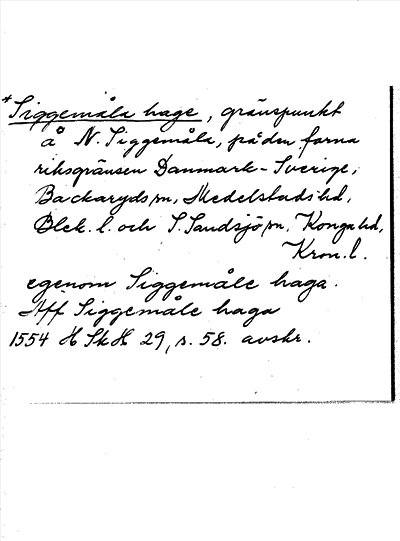 *Siggemåla hage, gränspunkt
å N. Siggemåla, på den forna
riksgränsen Danmark-Sverige;
Backaryds sn, Medelstads hd,
Blek. l. och S. Sandsjö sn, Konga hd,
Kron. l.
egenom Siggemåle haga.
Aff Siggemåle haga
1554 HSkH 29, s. 58. avskr.